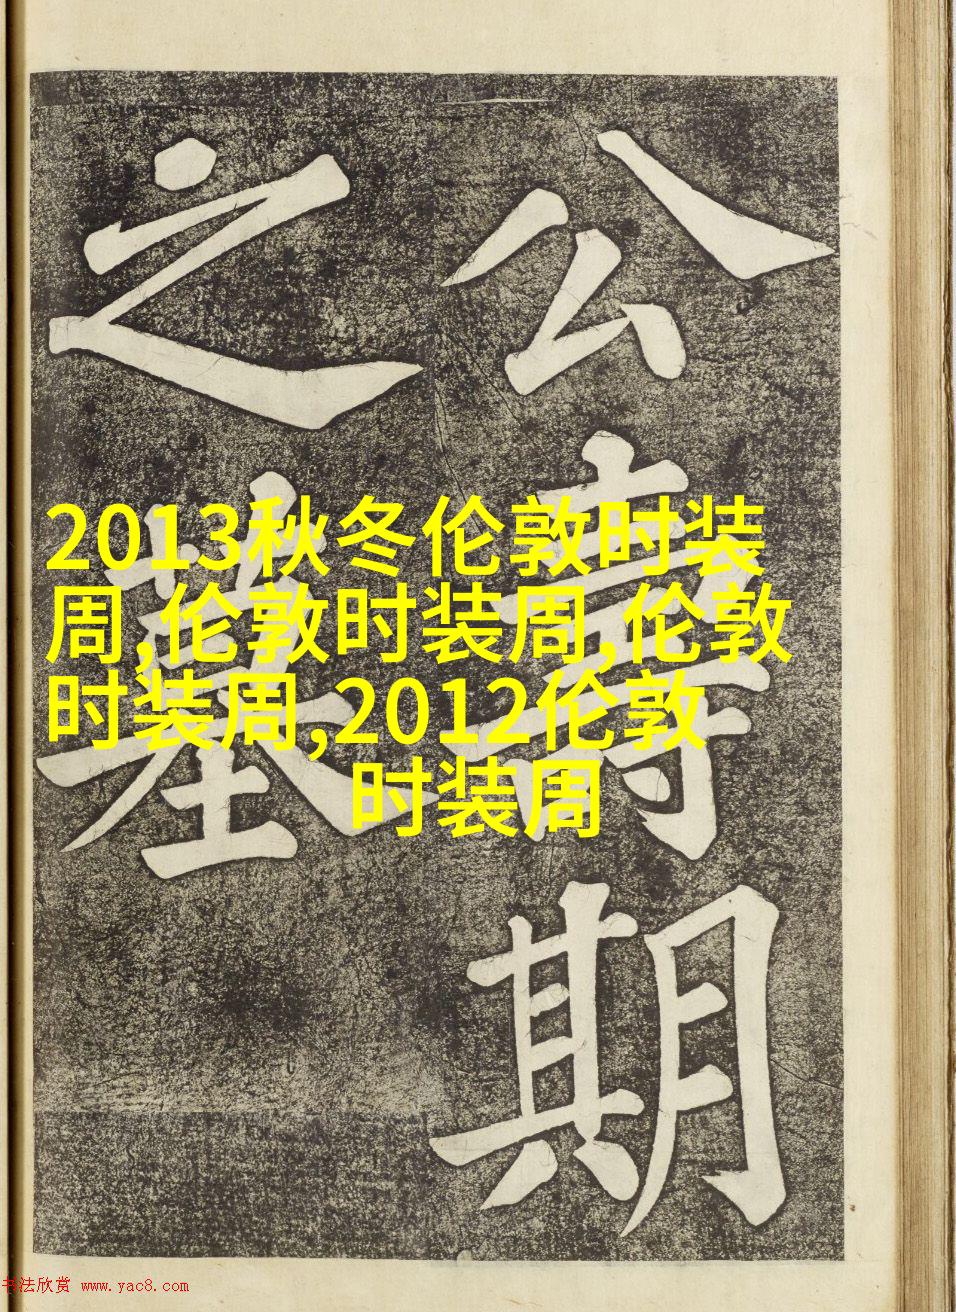 公壽期
之墓
2013秋冬伦敦时装
周,伦敦时装周,伦敦
时装周,2012伦敦
时装周
书法欣赏 www.yac8.com